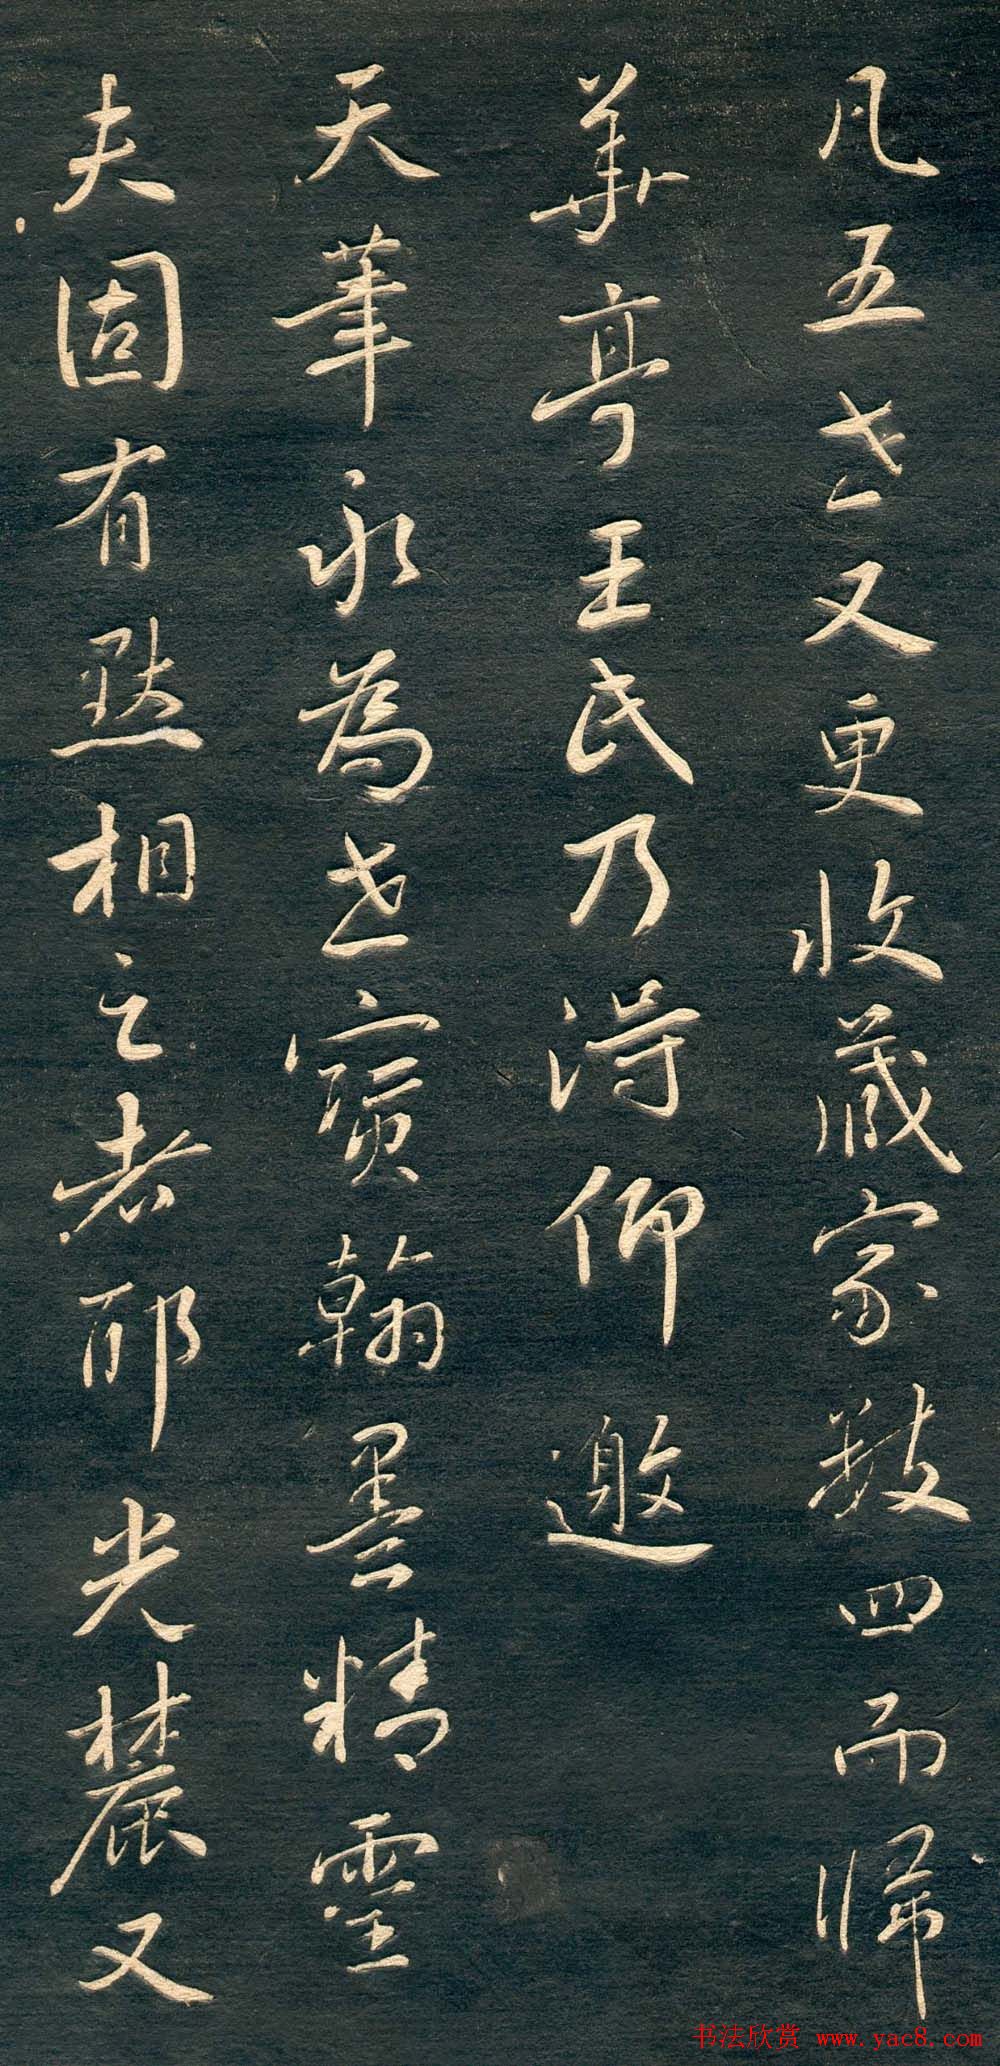 凡五世又更收藏家数四而归
华亭王氏乃得仰邀
天笔永为世宝翰墨精灵
夫固有默相之者耶光麓又
书法欣赏 www.yac8.com